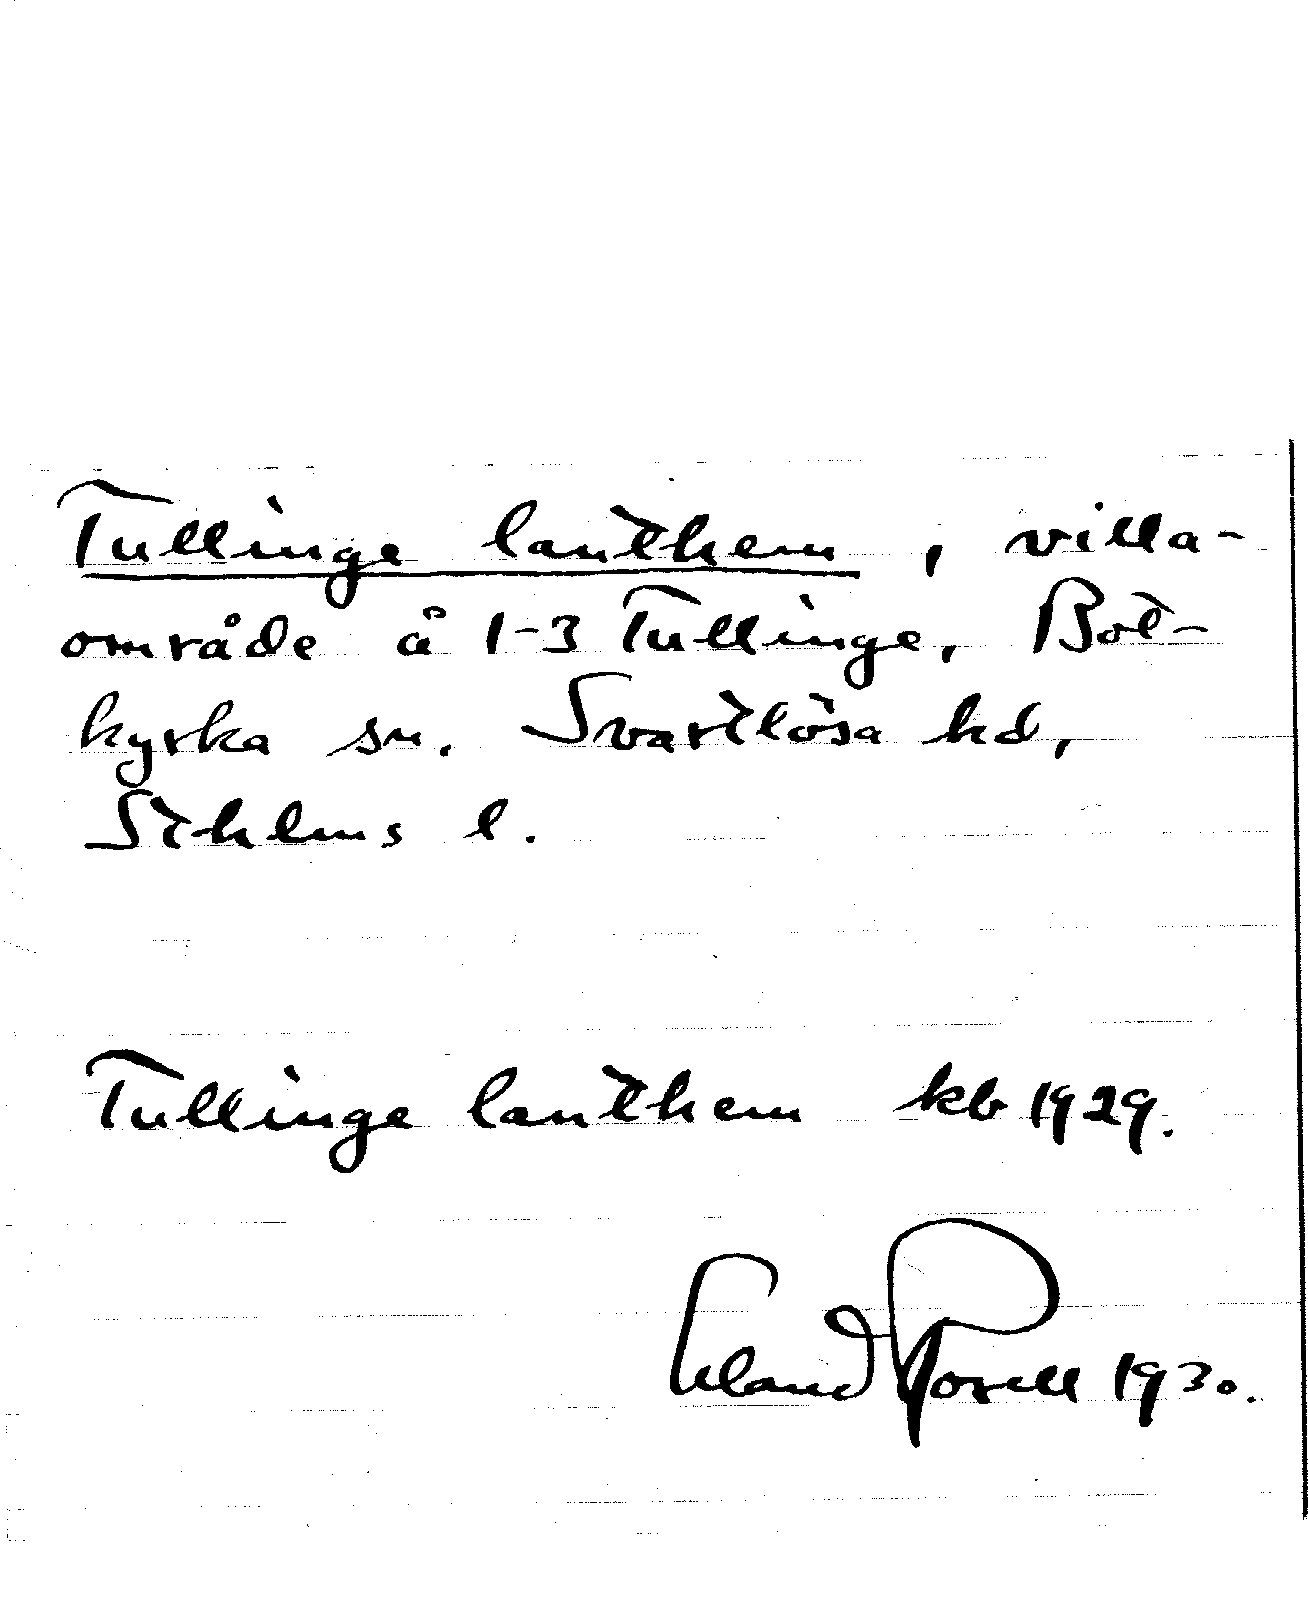 Tullinge lanthem, villa-
område å 1-3 Tullinge, Bot-
kyrka sn. Svartlösa hd,
Sthlms l.
Tullinge lanthem kb 1929.
1930.